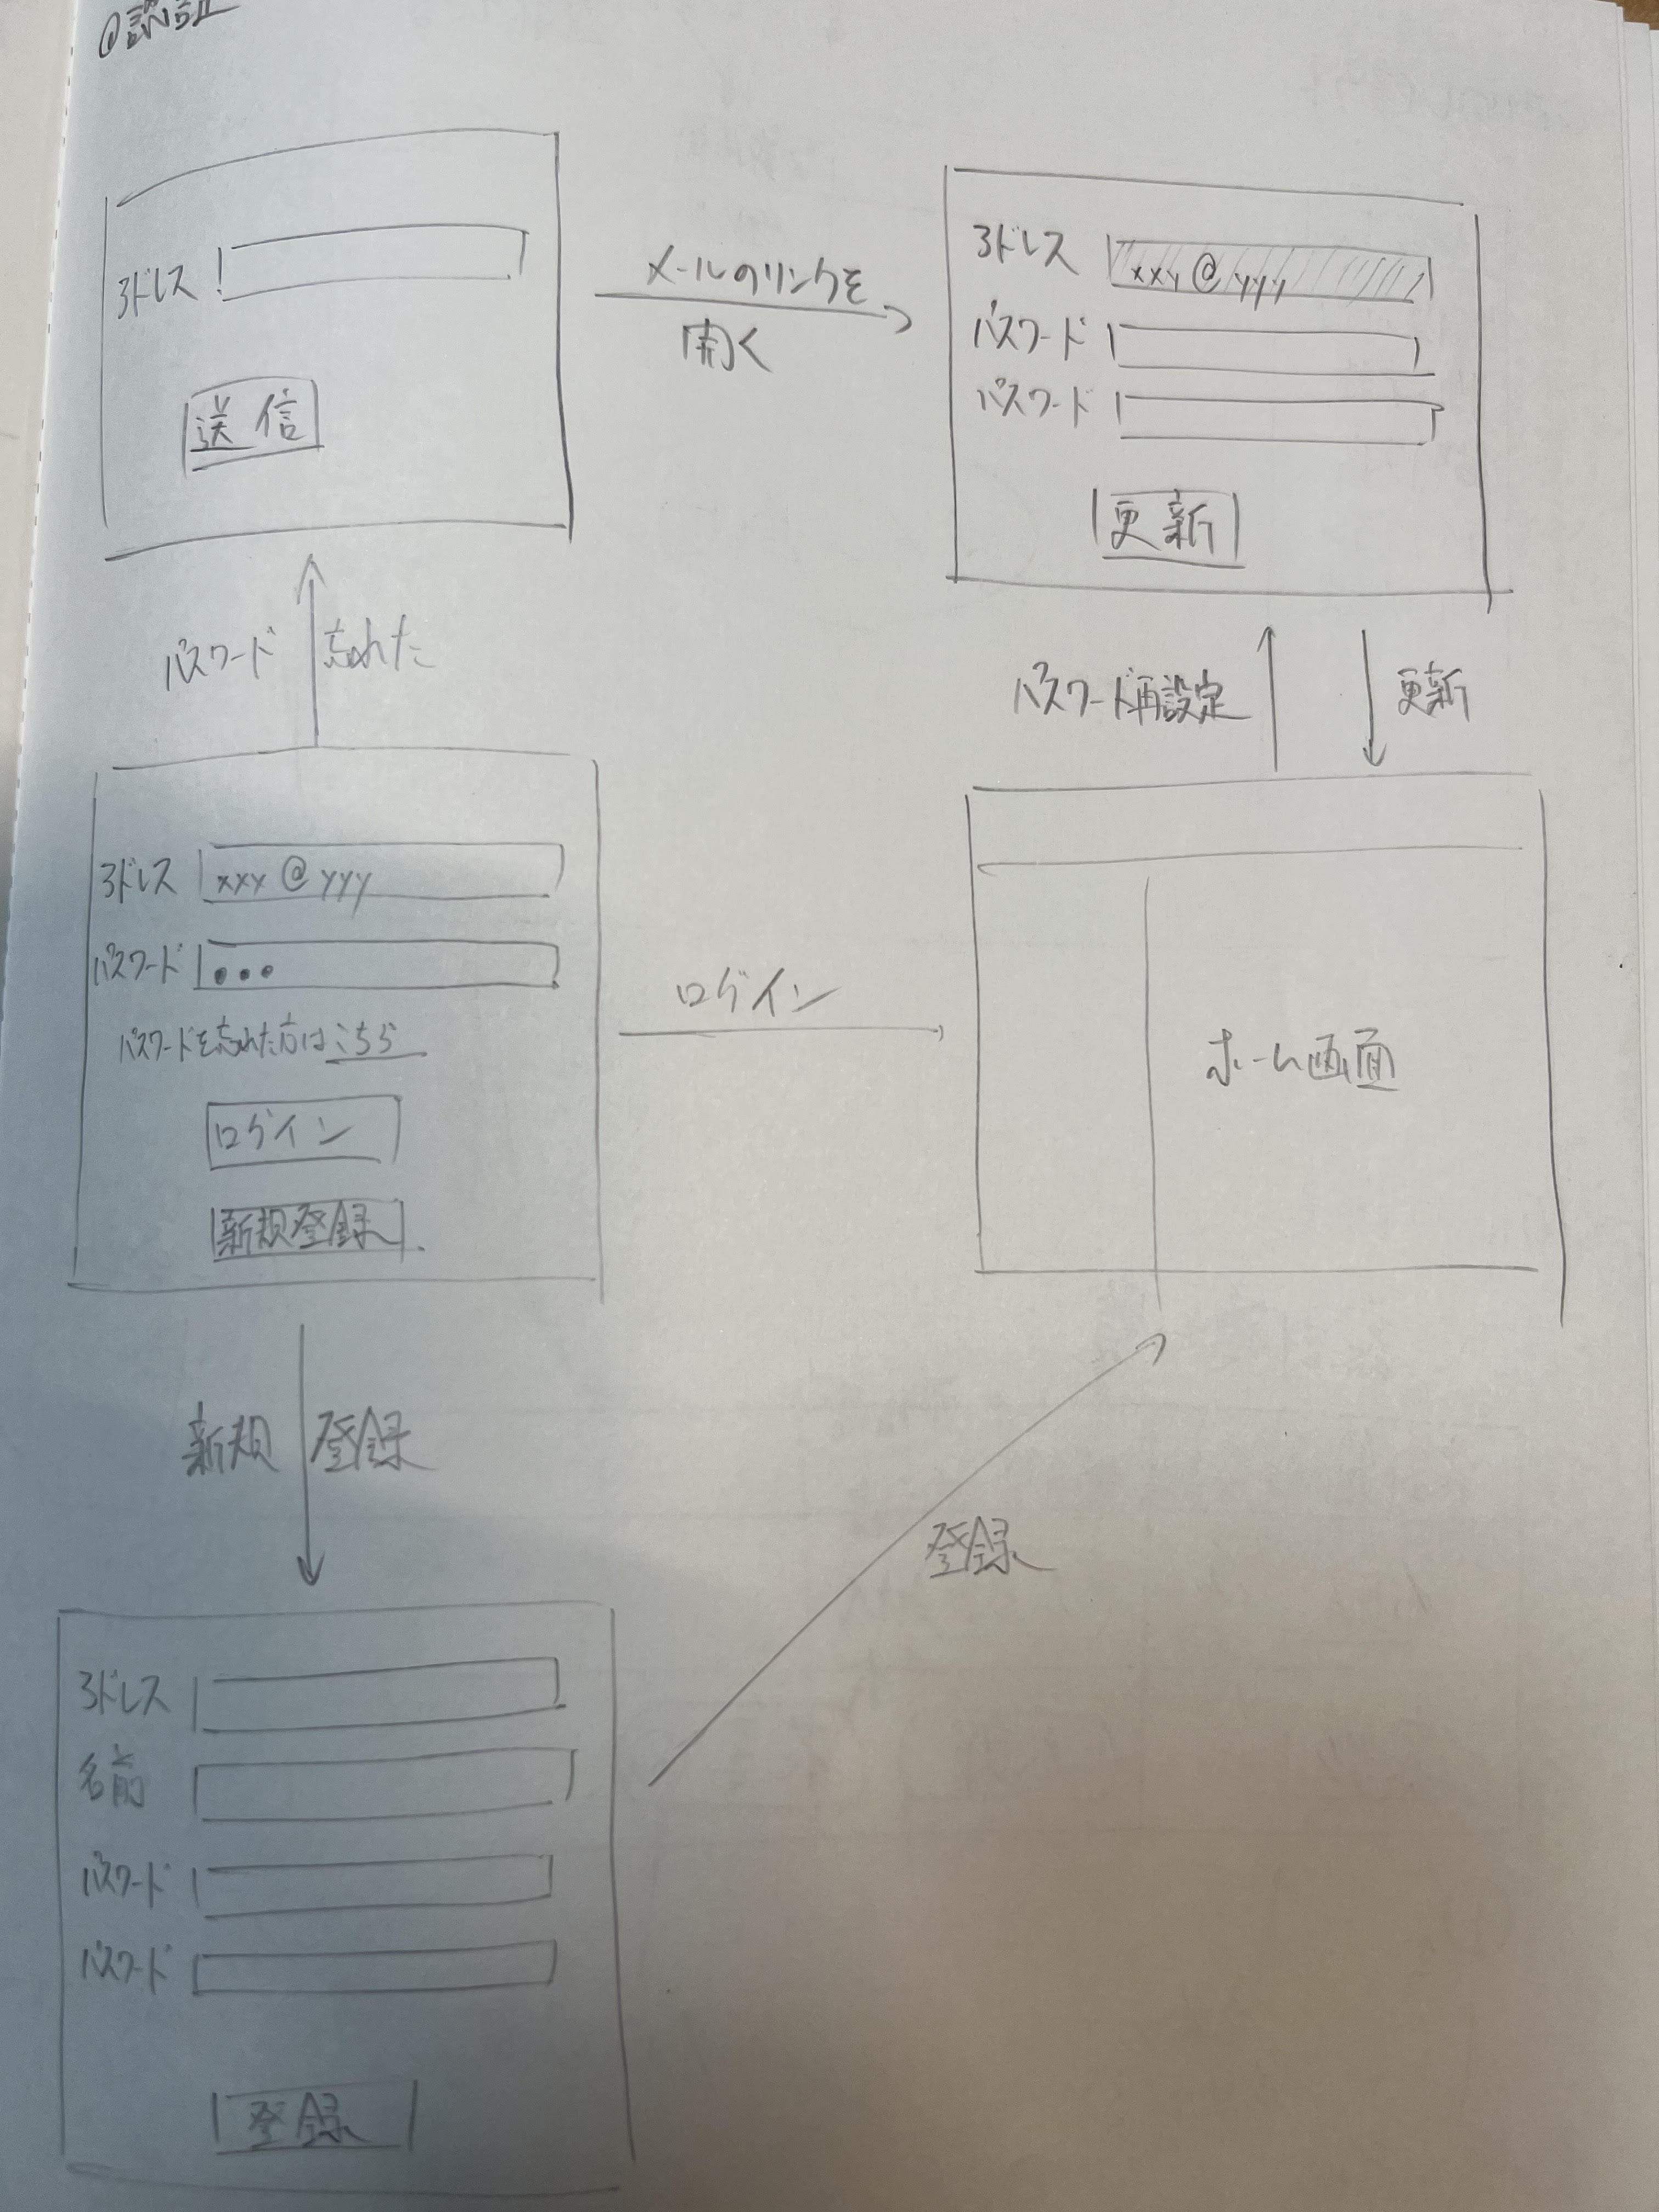 @認証
アドレス
送信
メールのリンクを
開く
アドレス xxy@yyy
パスワード
パスワード
更新
パスワード 忘れた
パスワード再設定
更新
アドレス xxy@yyy
パスワード •••
パスワードを忘れた方はこちら
ログイン
新規登録
ログイン
ホーム画面
新規 登録
登録
アドレス
名前
パスワード
パスワード
登録